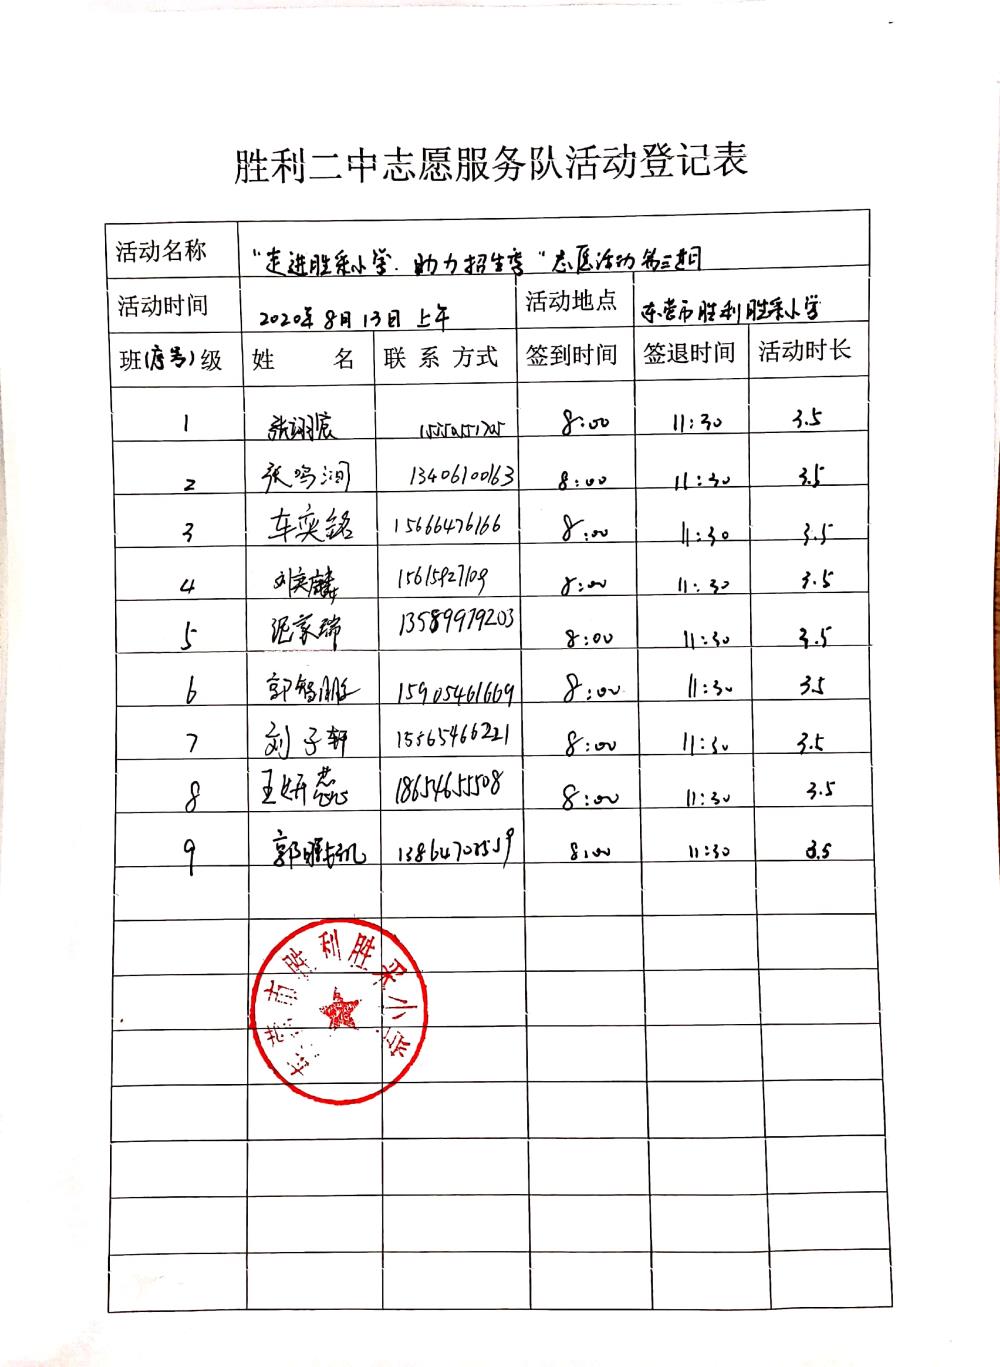 胜利二中志愿服务队活动登记表
活动名称 "走进胜采小学.助力招生季"志愿活动第三期
活动时间 2020年8月13日上午 活动地点 东营市胜利胜采小学
班(序号)级 姓 名 联系方式 签到时间 签退时间 活动时长
1 张翊宸 15550551705 8:00 11:30 3.5
2 张鸣润 13406100163 8:00 11:30 3.5
3 车奕铭 15666476166 8:00 11:30 3.5
4 刘奕麟 15615927109 8:00 11:30 3.5
5 泥家瑞 13589979203 8:00 11:30 3.5
6 郭智鹏 15905461669 8:00 11:30 3.5
7 刘子轩 15565466221 8:00 11:30 3.5
8 王妍蕊 18654655508 8:00 11:30 3.5
9 郭 8:00 11:30 3.5
东营市胜利胜采小学